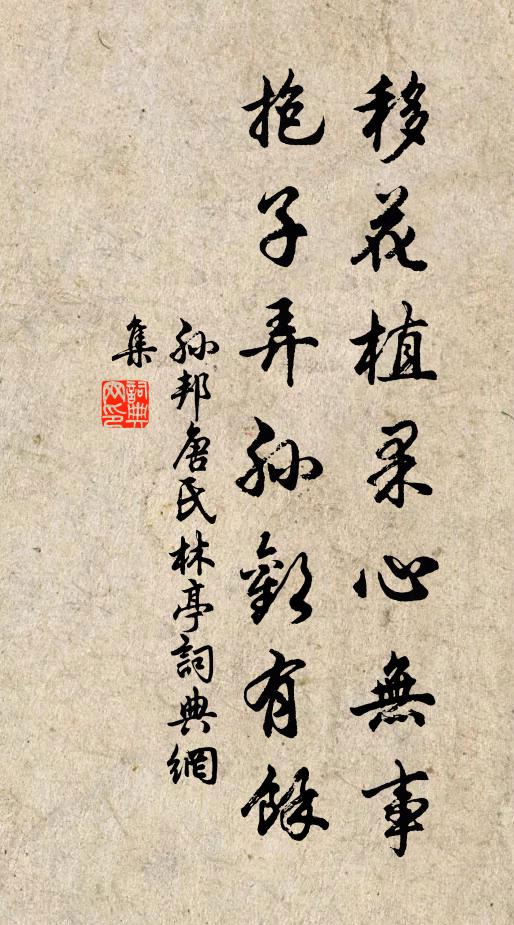 移花植果心無事
抱子弄孫歡有餘
孙邦唐氏林亭詞典網
集
詞典網印